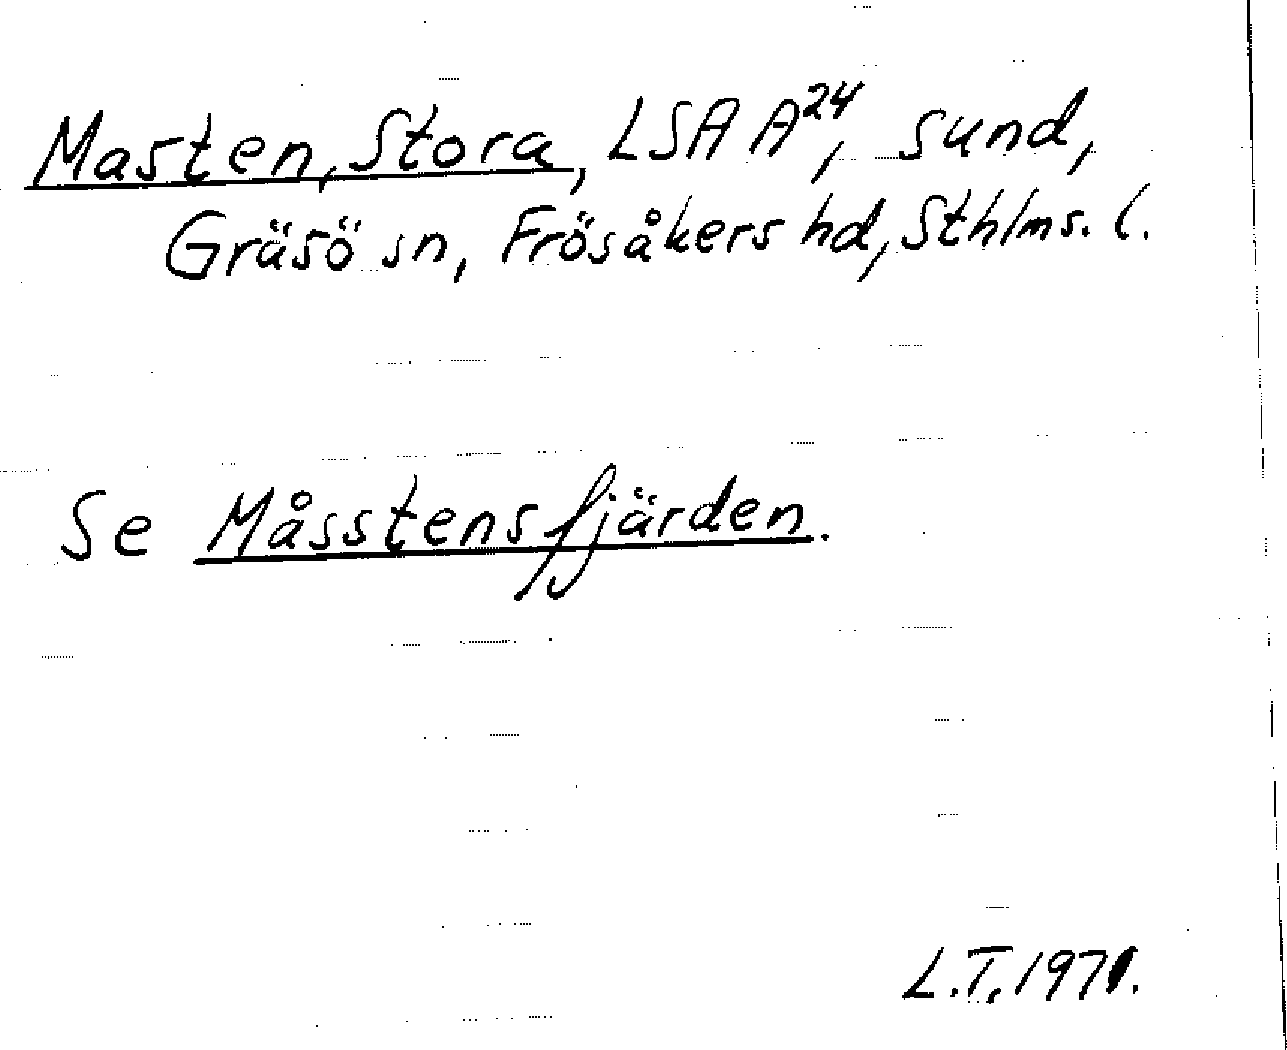 Masten, Stora, LSA A²⁴, sund,
Gräsö sn, Frösåkers hd, Sthlms. l.
Se Måsstensfjärden.
L.T. 1971.